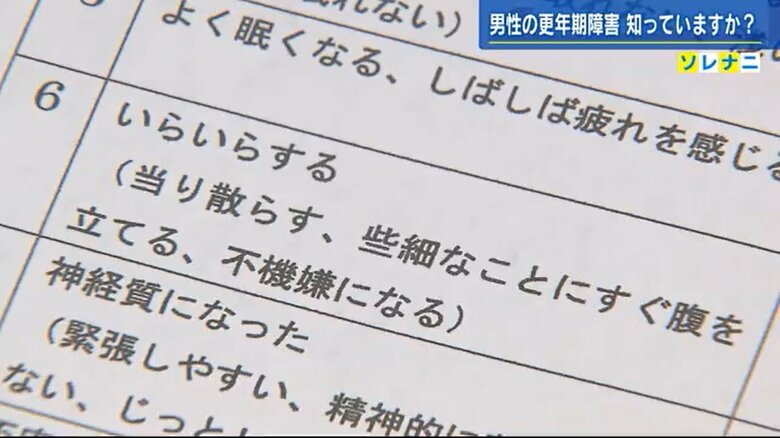 男性の更年期障害 知っていますか？
ソレナニ
れない）
よく眠くなる、しばしば疲れを感じる
6
いらいらする
（当り散らす、些細なことにすぐ腹を
立てる、不機嫌になる）
神経質になった
（緊張しやすい、精神的に
ない、じっと